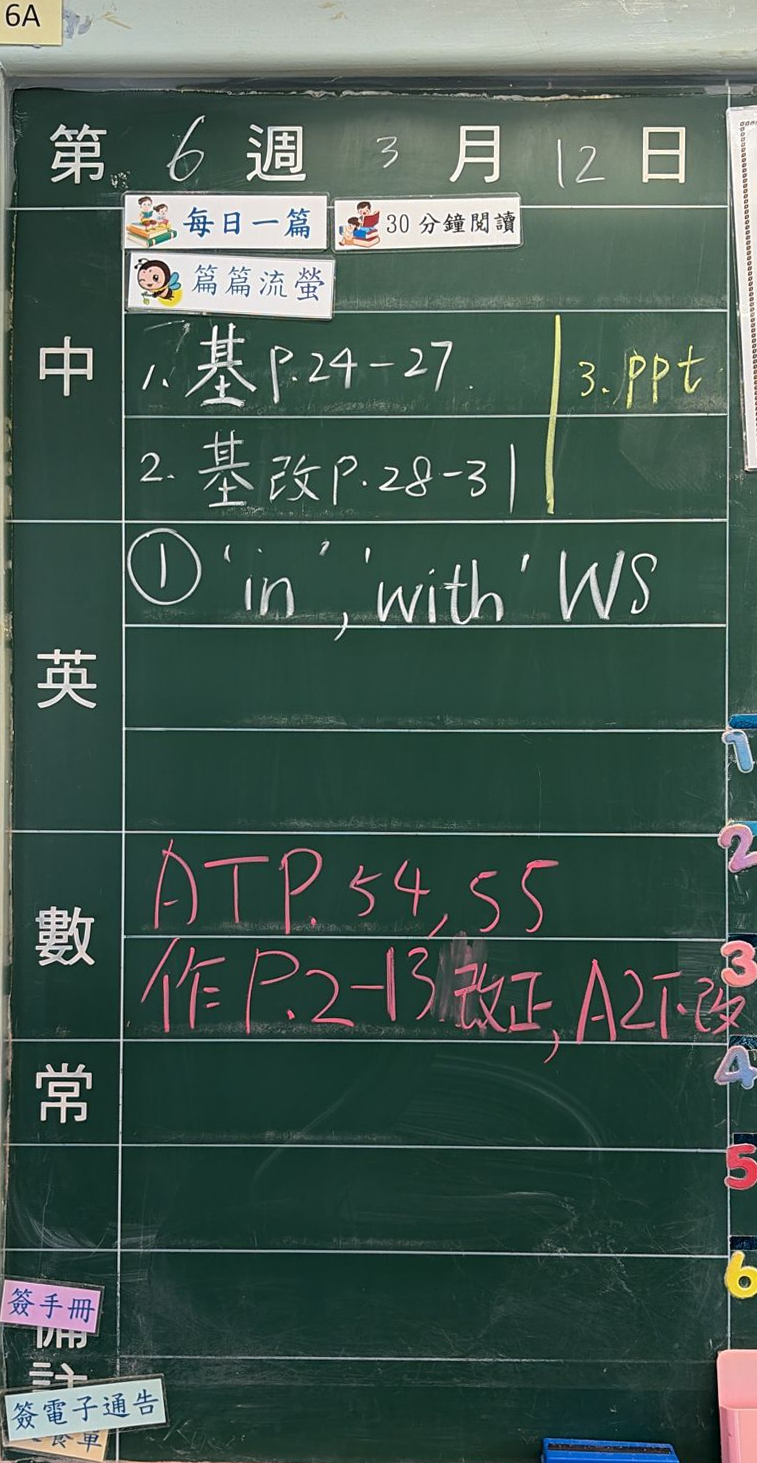 6A
第 6 週 3 月 12 日
每日一篇 30分鐘閱讀
篇篇流螢
中
1. 基 P.24-27. 3. ppt
2. 基 改 P.28-31
英
① 'in', 'with' WS
數
ATP. 54, 55
作 P.2-13 改正, A2T.改
常
簽手冊
備註
簽電子通告
1
2
3
4
5
6